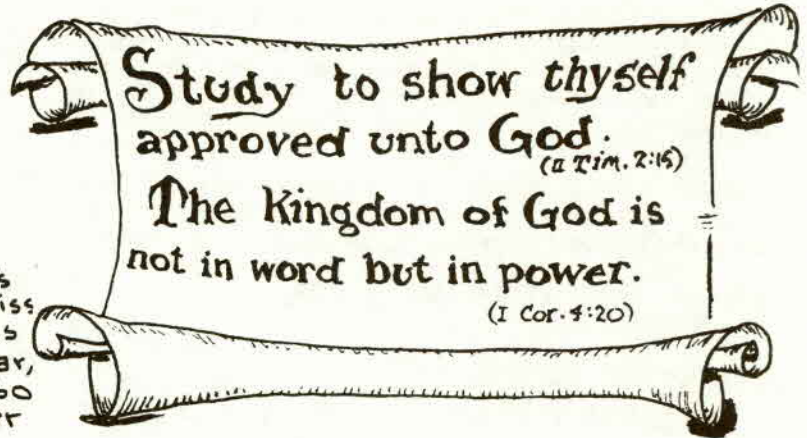 Study to show thyself
approved unto God.
(II Tim. 2:15)
The Kingdom of God is
not in word but in power.
(I Cor. 4:20)